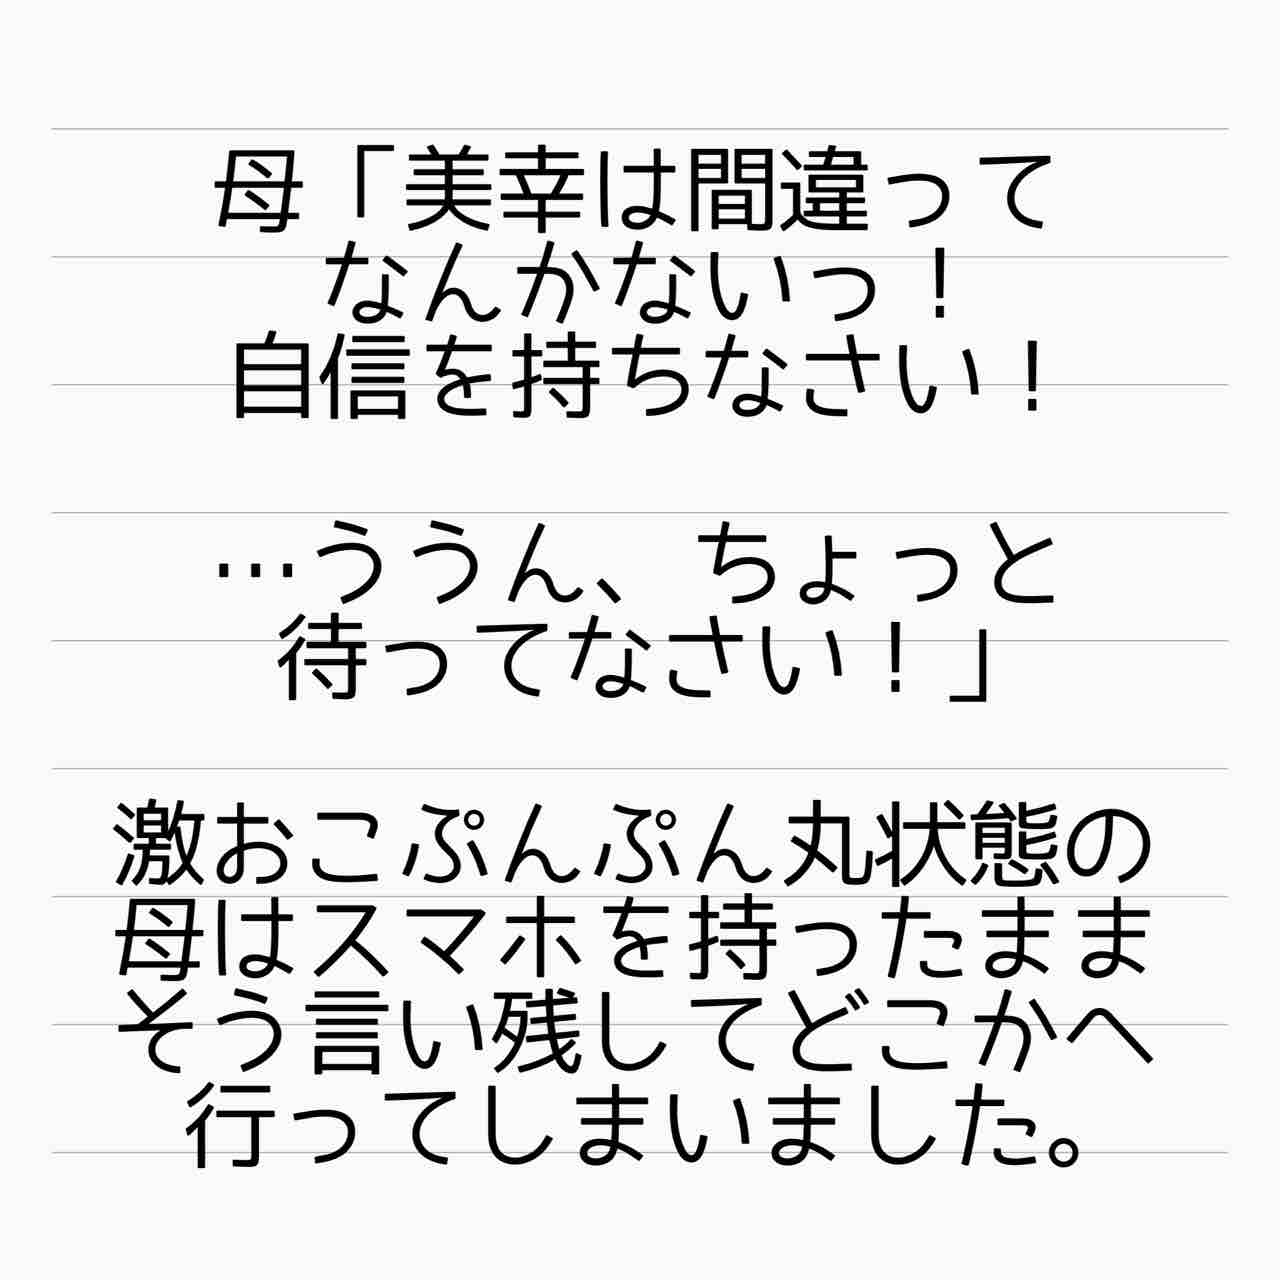 母「美幸は間違って
なんかないっ！
自信を持ちなさい！
…ううん、ちょっと
待ってなさい！」
激おこぷんぷん丸状態の
母はスマホを持ったまま
そう言い残してどこかへ
行ってしまいました。